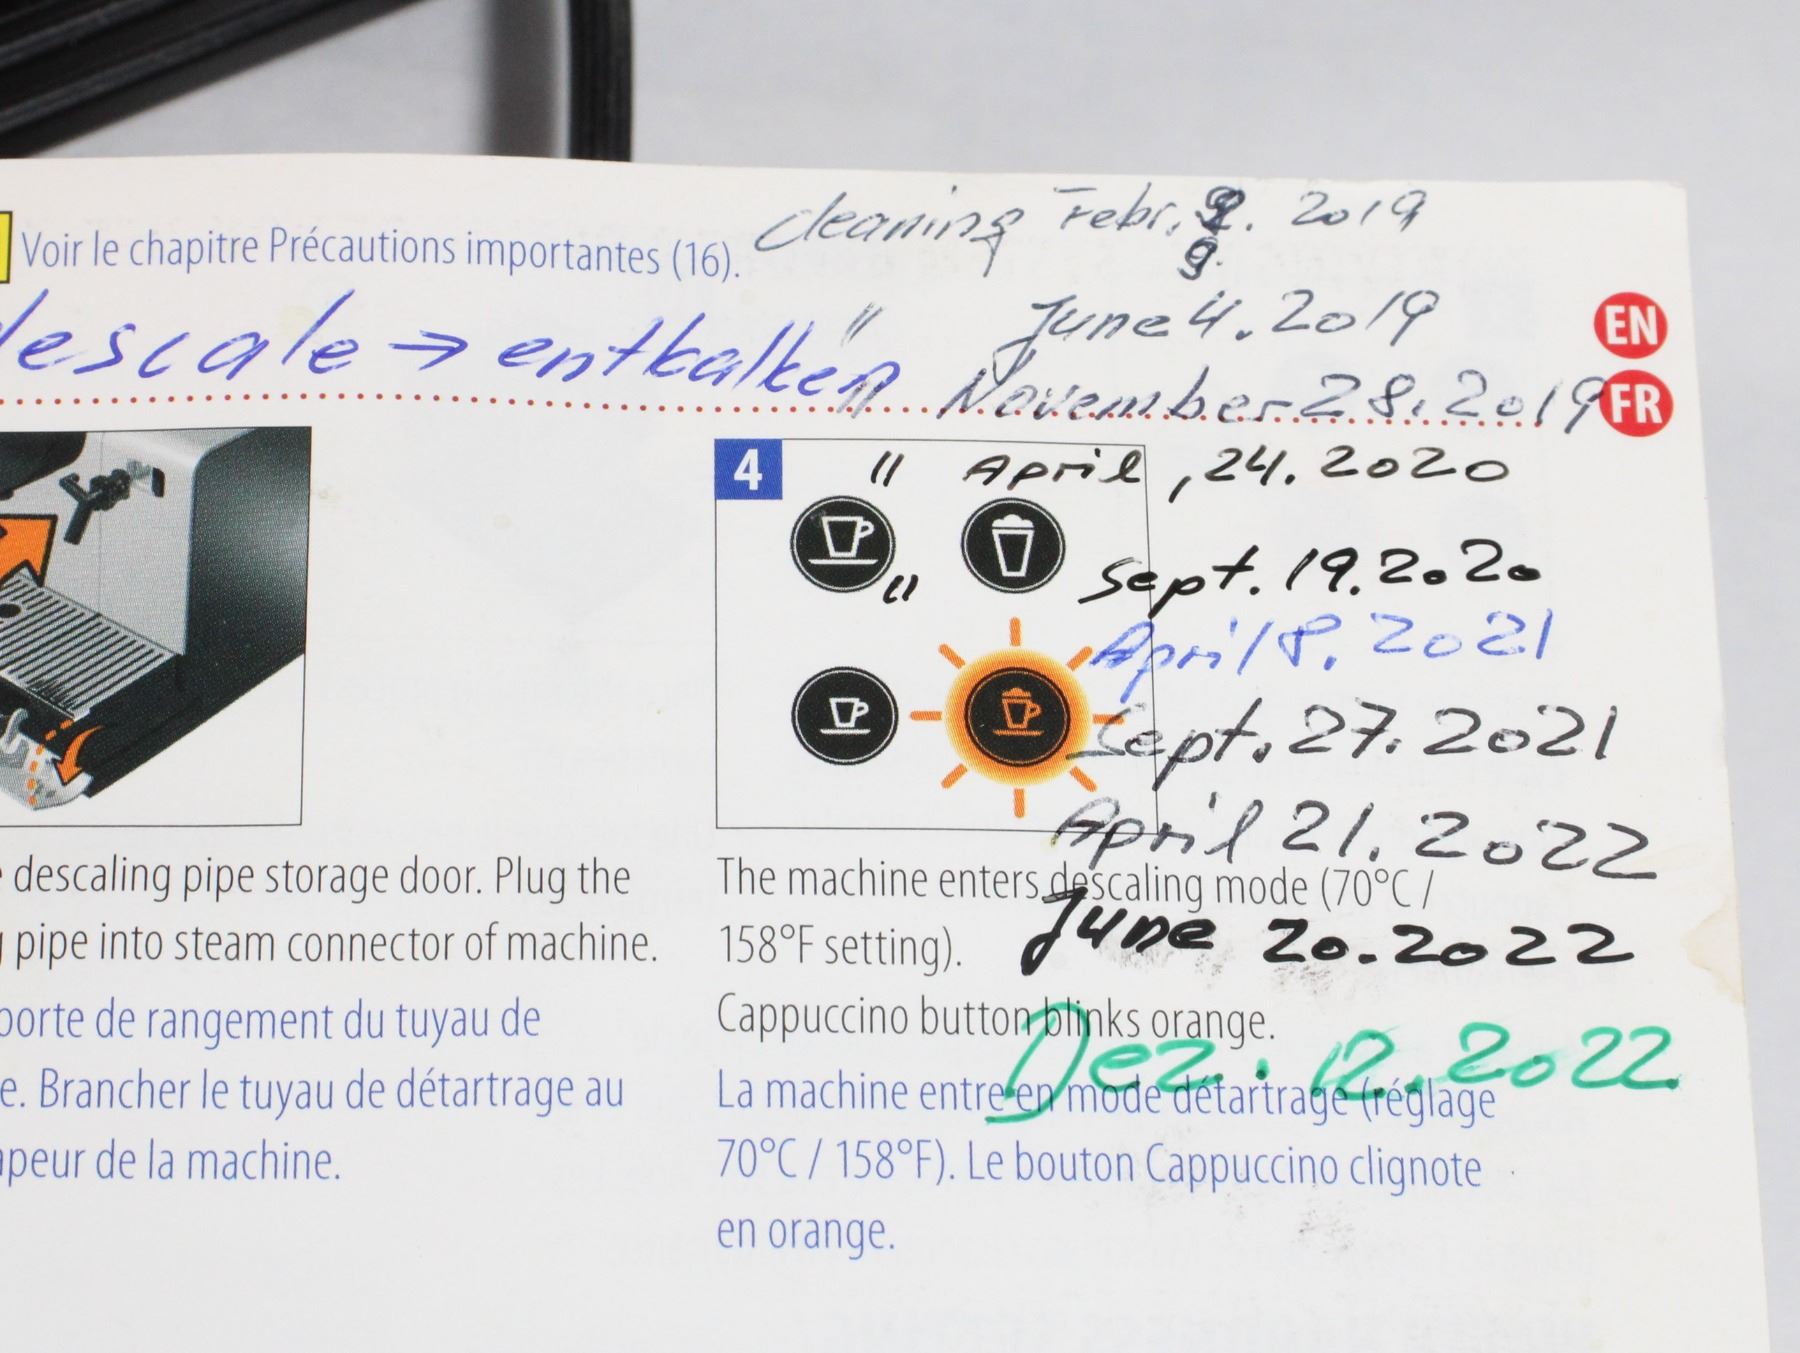 Voir le chapitre Précautions importantes (16).
cleaning Febr. 9. 2019
9.
" June 4. 2019
EN
descale → entkalken
" November 28. 2019
FR
4
" April, 24. 2020
" Sept. 19. 2020
April 8. 2021
Sept. 27. 2021
April 21. 2022
descaling pipe storage door. Plug the
pipe into steam connector of machine.
porte de rangement du tuyau de
e. Brancher le tuyau de détartrage au
apeur de la machine.
The machine enters descaling mode (70°C /
158°F setting).
June 20. 2022
Cappuccino button blinks orange.
Dez. 12. 2022
La machine entre en mode détartrage (réglage
70°C / 158°F). Le bouton Cappuccino clignote
en orange.